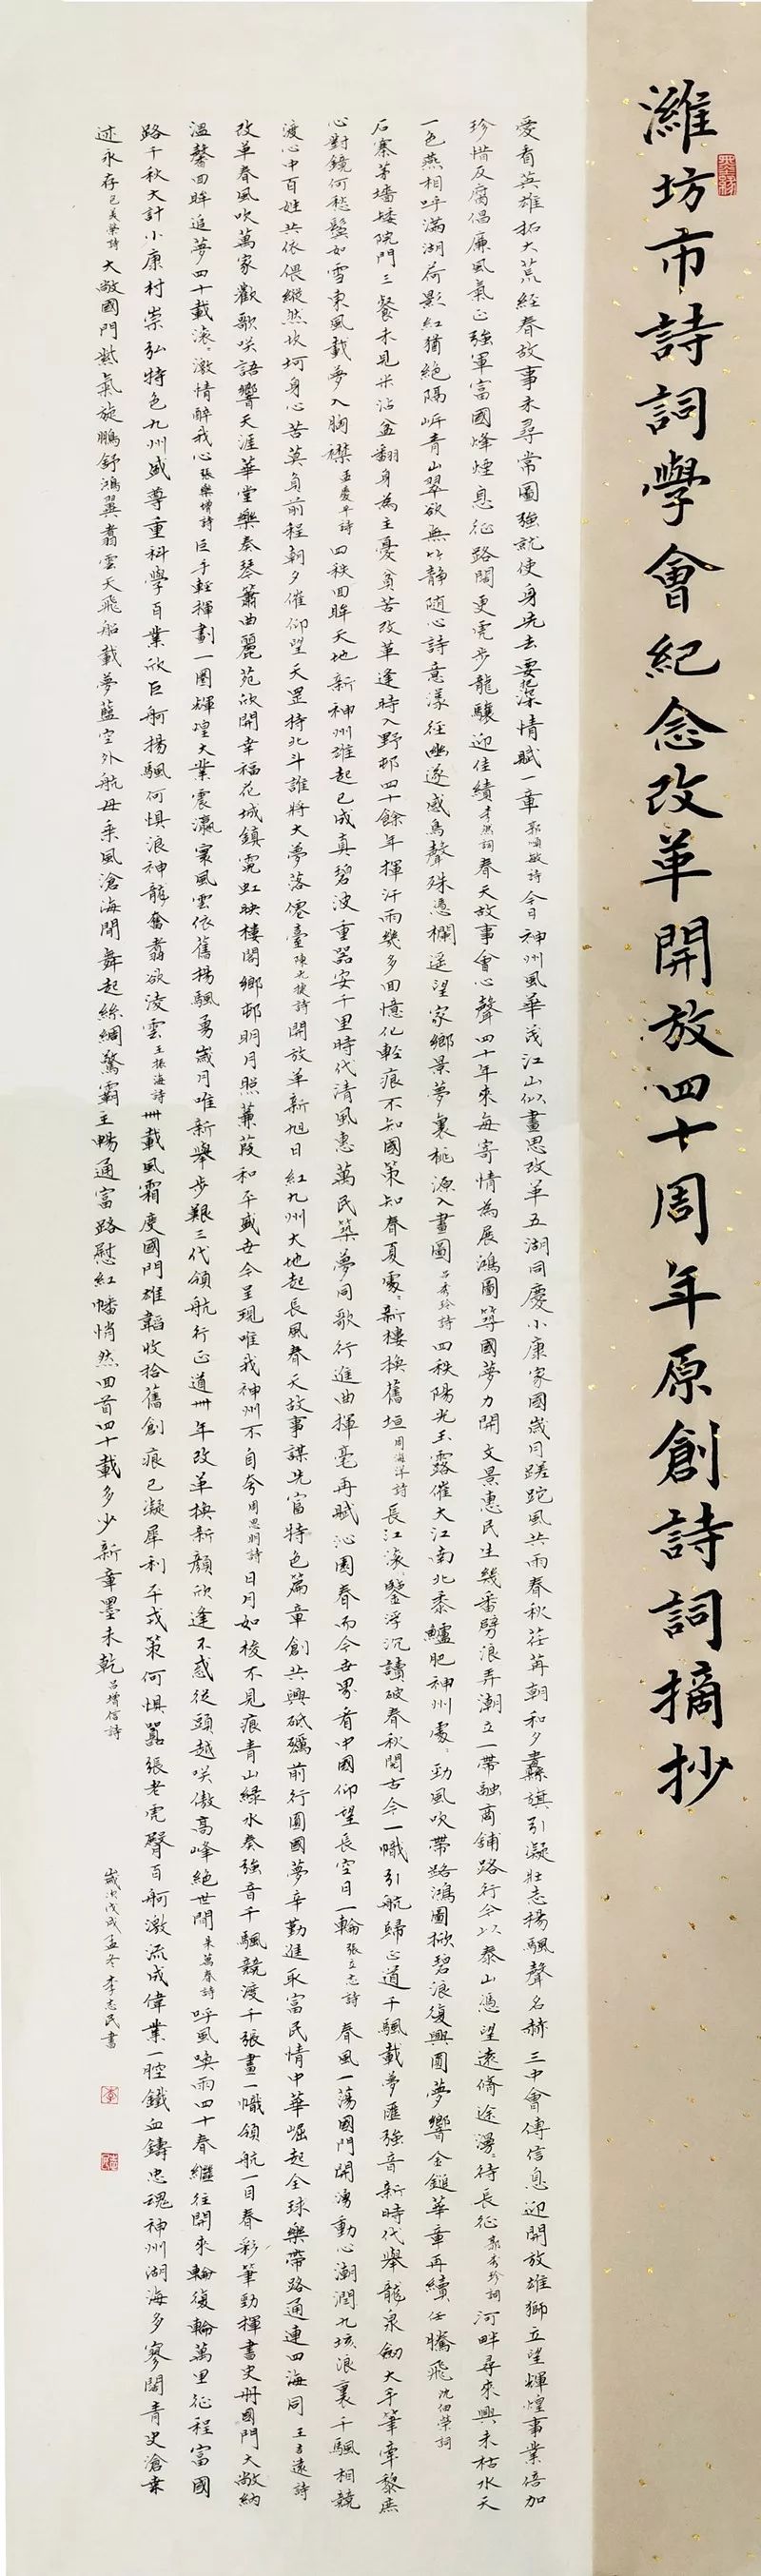 濰坊市詩詞學會紀念改革開放四十周年原創詩詞摘抄
愛看英雄拓大荒經春故事未尋常圖強就使身先去要把深情賦一章郭順敏詩今日神州風華茂江山似畫思改革五湖同慶小康家國歲月蹉跎風共雨春秋荏苒朝和夕纛旗引凝壯志揚颿聲名赫三中會傳信息迎開放雄獅立望輝煌事業倍加
珍惜反腐倡廉風氣正強軍富國烽煙息征路闊更虎步龍驤迎佳績李然詞春天故事會心聲四十年來每寄情為展鴻圖籌國夢力開文景惠民生幾番劈浪弄潮立一帶融商鋪路行今以泰山憑望遠脩途漫漫待長征郭秀珍詞河畔尋來興未枯水天
一色燕相呼滿湖荷影紅猶絕隔岸青山翠欲無竹靜隨心詩意漾徑幽邃感鳥聲殊憑欄遥望家鄉景夢裏桃源入畫圖呂秀玲詩四秩陽光玉露催大江南北黍鱸肥神州處處勁風吹帶路鴻圖掀碧浪復興圓夢響金鎚華章再續任騰飛沈伯榮詞
石寨茅墻矮院門三餐未見米沾盆翻身為主憂貧苦改革逢時入野邨四十餘年揮汗雨幾多回憶化輕痕不知國策知春夏處處新樓換舊垣周海洋詩長江滚滚鑒浮沉讀破春秋閱古今一幟引航歸正道千颿載夢匯強音新時代舉龍泉劍大手筆牽黎庶
心對鏡何愁鬢如雪東風載夢入胸襟孟慶平詩四秩回眸天地新神州雄起已成真碧波重器安千里時代清風惠萬民築夢同歌行進曲揮毫再賦沁園春而今世界看中國仰望長空日一輪張立志詩春風一蕩國門開湧動心潮潤九垓浪裏千颿相競
渡心中百姓共依偎縱然坎坷身心苦莫負前程朝夕催仰望天罡持北斗誰將大夢落僊臺陳允捷詩開放革新旭日紅九州大地起長風春天故事謀先富特色篇章創共興砥礪前行圓國夢辛勤進取富民情中華崛起全球樂帶路通連四海同王吉遠詩
改革春風吹萬家歡歌咲語響天涯華堂樂奏琴簫曲麗苑欣開幸福花城鎮霓虹映樓閣鄉邨明月照蒹葭和平盛世今呈現唯我神州不自夸周思明詩日月如梭不見痕青山綠水奏強音千颿競渡千張畫一幟領航一目春彩筆勁揮書史冊國門大敞納
溫馨回眸追夢四十載滚滚激情醉我心張樂增詩巨手輕揮劃一圈輝煌大業震瀛寰風雲依舊揚颿勇歲月唯新舉步艱三代領航行正道卌年改革換新顏欣逢不惑從頭越咲傲高峰絕世間朱萬春詩呼風喚雨四十春繼往開來輪復輪萬里征程富國
路千秋大計小康村崇弘特色九州盛尊重科學百業欣巨舸揚颿何惧浪神龍奮翥欲淩雲王振海詩卌載風霜度國門雄韜收拾舊創痕已凝犀利平戎策何惧囂張老虎臀百舸激流成偉業一腔鐵血鑄忠魂神州湖海多寥闊青史滄桒
述永存已美榮詩大敞國門紫氣旋鵬舒鴻翼翥雲天飛船載夢藍空外航母乘風滄海間舞起絲綢驚霸主暢通富路慰紅幡悄然回首四十載多少新章墨未乾呂增信詩
歲次戊戌孟冬李志民書